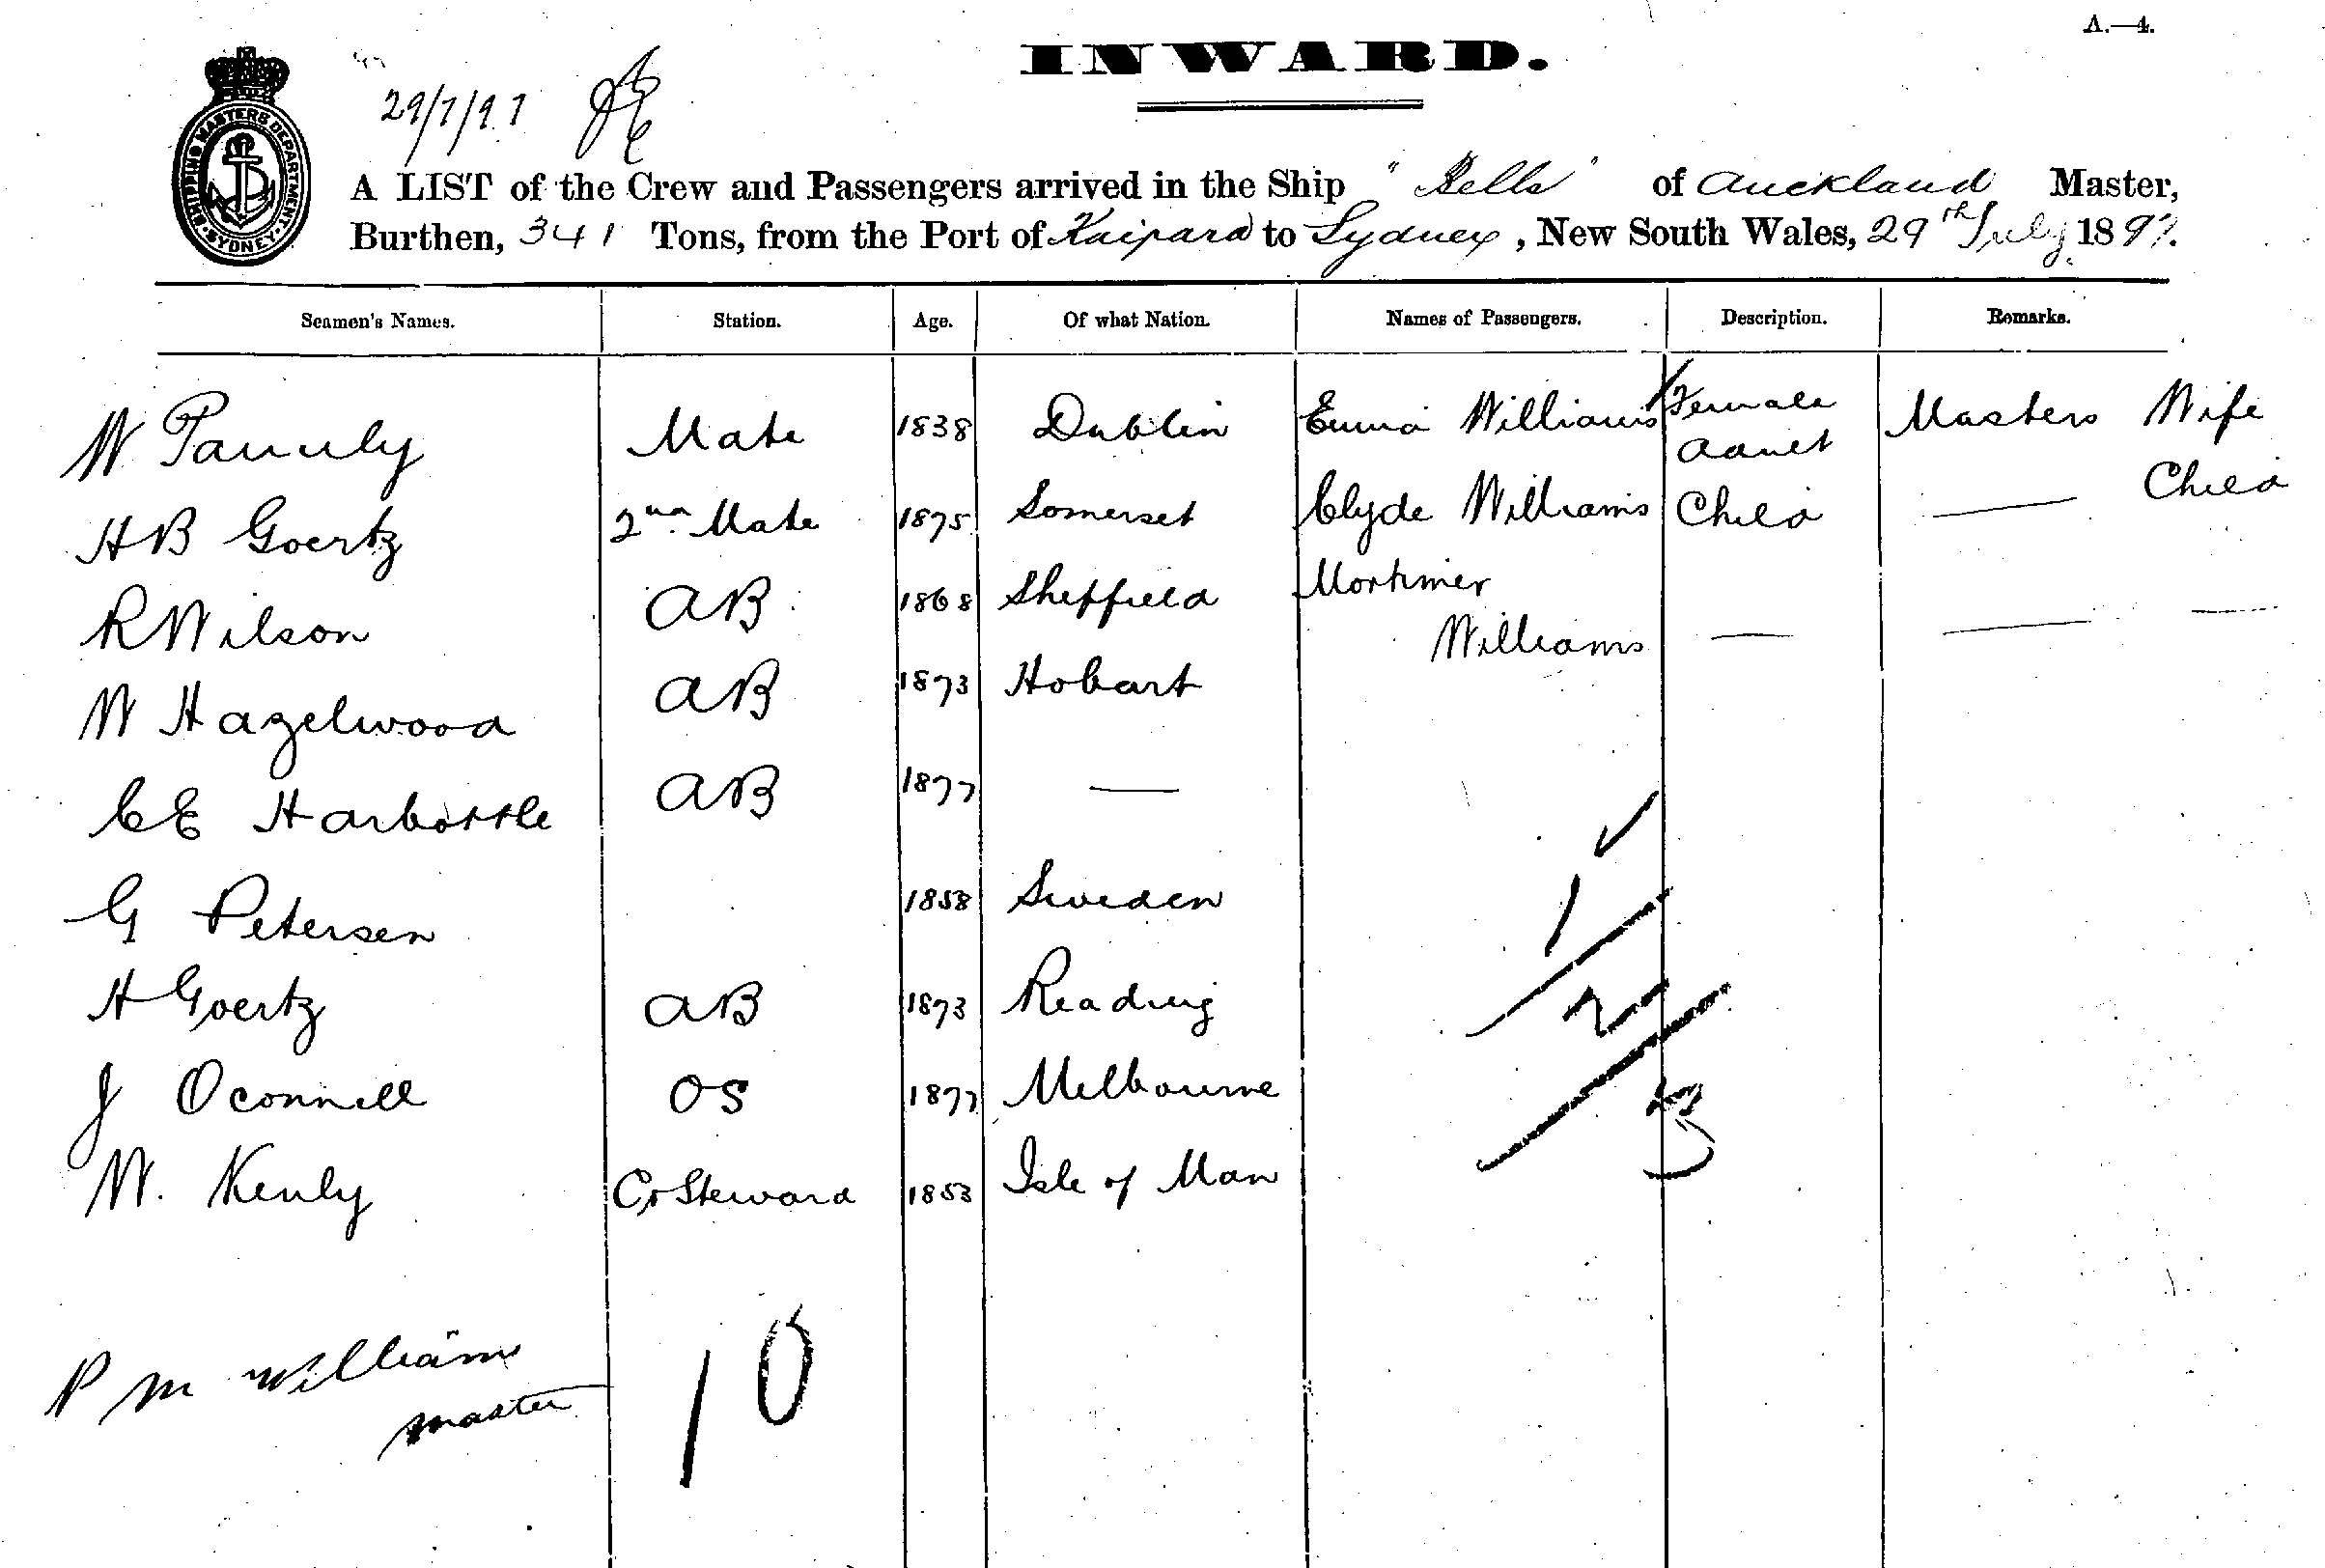 A.—4.
INWARD.
29/7/97
SHIPPING MASTERS DEPARTMENT SYDNEY
A LIST of the Crew and Passengers arrived in the Ship "Bells" of Auckland Master,
Burthen, 341 Tons, from the Port of Kaipara to Sydney, New South Wales, 29th July 1897.
Seamen's Names. Station. Age. Of what Nation. Names of Passengers. Description. Remarks.
W Mate 1838 Dublin Emma Williams Female Adult Masters Wife
H B Goertz 2nd Mate 1875 Somerset Clyde Williams Child — Child
R Wilson AB 1868 Sheffield Mortimer Williams — — —
W Hazelwood AB 1873 Hobart
C E Harbottle AB 1877 —
G Petersen 1858 Sweden 1
H Goertz AB 1873 Reading 2
J Oconnell OS 1877 Melbourne 3
W. Kenly Steward 1853 Isle of Man
P M Williams
master
10